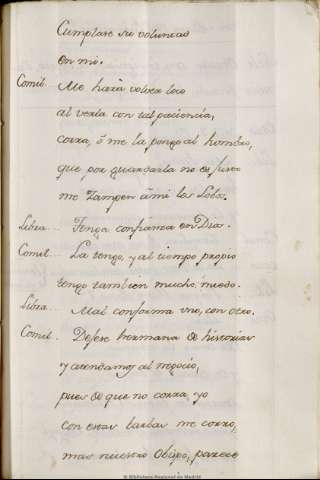 Cumplase su voluntad
en mi.
Comil. Me hará volver loco
al verla con tal paciencia,
corra, ó me la pongo al hombro,
que por guardarla no es justo
me zampen á mi los Lobos.
Libra... Tenga confianza en Dios.
Comil... La tengo, y al tiempo propio
tengo tambien mucho miedo.
Libra... Mal conforma uno, con otro.
Comil. Dejese hermana de historias
y atendamos al negocio,
pues de que no corra yo
con estas barbas me corro,
mas nuestro Obispo, parece
© Biblioteca Nacional de Madrid